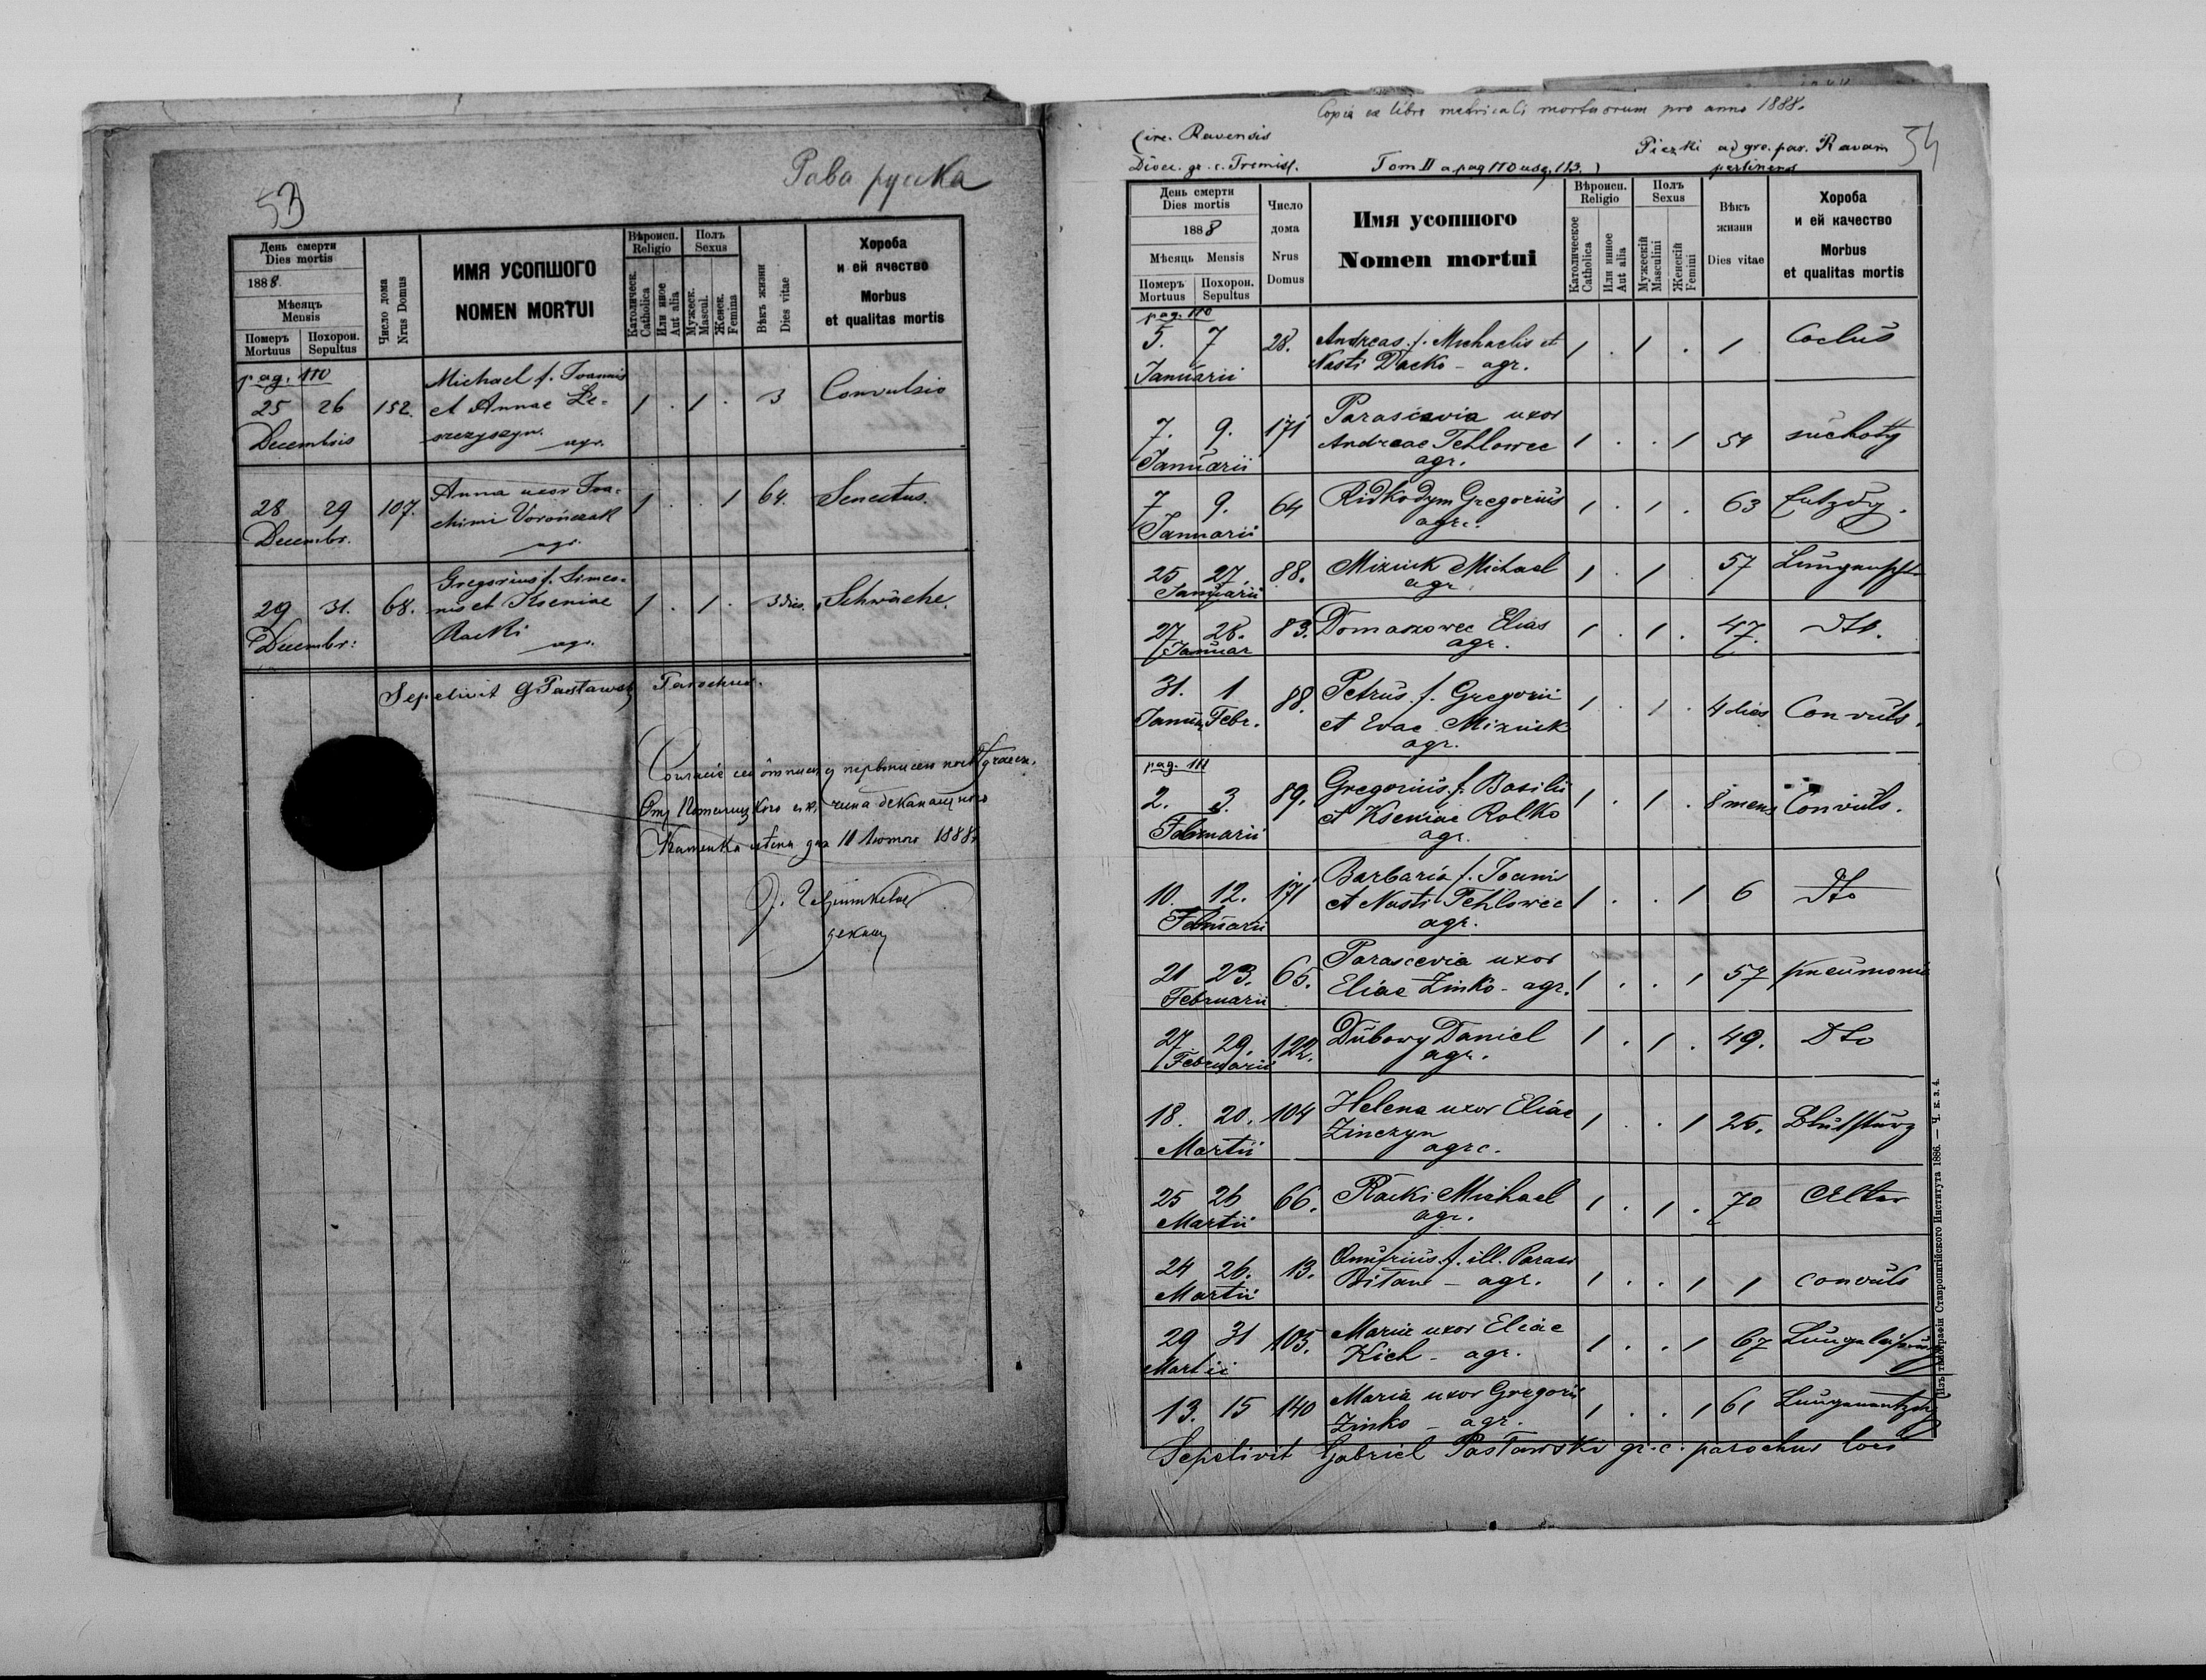 53
Рава руска
День смерти
Dies mortis
1888.
Мѣсяцъ
Mensis
Померъ
Mortuus
Похорон.
Sepultus
Число дома
Nrus Domus
ИМЯ УСОПШОГО
NOMEN MORTUI
Вѣроисп.
Religio
Католическ.
Catholica
Или иное
Aut alia
Полъ
Sexus
Мужеск.
Mascul.
Женск.
Femina
Вѣкъ жизни
Dies vitae
Хороба
и ей ячество
Morbus
et qualitas mortis
pag. 110
25 26 152. Michael f. Joannis 1 . 1 . 3 Convulsio
et Annae Le-
szczyszyn.
Decembris agr.
28 29 107. Anna uxor Joa- 1 . . 1 64. Senectus.
chimi Worończak
Decembr. agr.
29 31. 68. Gregorius f. Simeo- 1 . 1 . 3 dies. Schwäche.
nis et Kseniae
Racki
Decembr: agr.
Sepelivit G Pasławski Parochus.
Каменка дня 11 Лютого 1888
декан
Copia ex libro metricali mortuorum pro anno 1888.
Circ. Ravensis
Dioec. gr. c. Premisl.
Tom II a pag 110 usq. 113.
ad gr. par. Ravam
pertinens
54
День смерти
Dies mortis
1888
Мѣсяць Mensis
Померъ
Mortuus
Похорон.
Sepultus
Число
дома
Nrus
Domus
Имя усопшого
Nomen mortui
Вѣроисп.
Religio
Католическое
Catholica
Или инное
Aut alia
Полъ
Sexus
Мужескій
Masculini
Женскій
Femini
Вѣкъ
жизни
Dies vitae
Хороба
и ей качество
Morbus
et qualitas mortis
pag. 110
5. 7 28. Andreas f. Michaelis et 1 . 1 . 1 Coclus
Januarii Nasti Dacko - agr.
7. 9. 171 Parascevia uxor
Andreae Tchlowec 1 . . 1 54 suchoty
Januarii agr.
7 9. 64 Ridkodym Gregorius 1 . 1 . 63
Januarii agr.
25 27. 88. Miziuk Michael 1 . 1 57
Januarii agr.
27 28. 83. Domaszowec Elias 1 . 1 . 47. Dto.
Januar agr.
31. 1 88. Petrus f. Gregorii 1 . 1 . 4 dies Convuls.
Januar. Febr. et Evae Miziuk
agr.
pag. 111
2. 3. 89. Gregorius f. Basilii 1 . 1 . 8 mens Convuls.
Februarii et Kseniae Rolko
agr.
10. 12. 171 Barbaria f. Joannis
et Nasti Tchlowec 1 . . 1 6 Dto
Februarii agr.
21 23. 65. Parascevia uxor
Eliae Zinko - agr. 1 . . 1 57 pneumonia
Februarii
27 29. 122. Dubowy Daniel 1 . 1 . 49. Dto
Februarii agr.
18. 20. 104 Helena uxor Eliae 1 . . 1 26. Blutsturz
Zinczyn
Martii agrc.
25 26 66. Racki Michael 1 . 1 . 70 Alter
Martii agr.
24 26. 13. Onufrius f. ill. Paras 1 . . 1 1 convuls
Martii Bitane - agr.
29 31 105. Maria uxor Eliae 1 . . 1 67
Martii Kich - agr.
13. 15 140 Maria uxor Gregorii 1 . . 1 61
Zinko - agr.
Sepelivit Gabriel Pasławski gr. c. parochus loci
Изъ типографіи Ставропигійского Института 1886. — Ч. к. з. 4.